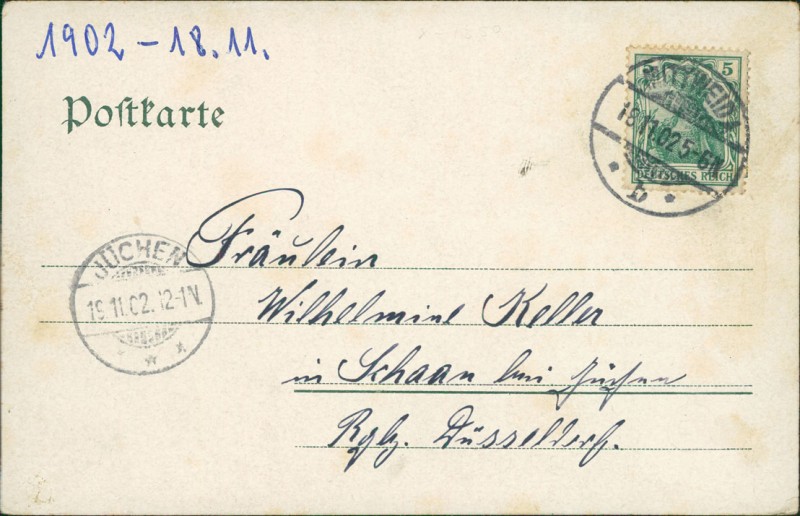 1902 - 18.11.
Postkarte
5
MITTWEIDA
18.11.02 5-6N.
DEUTSCHES REICH
b
JÜCHEN
19.11.02.12-1N.
Fräulein
Wilhelmine Keller
in Schaan bei Jüchen
Rgbz. Düsseldorf.